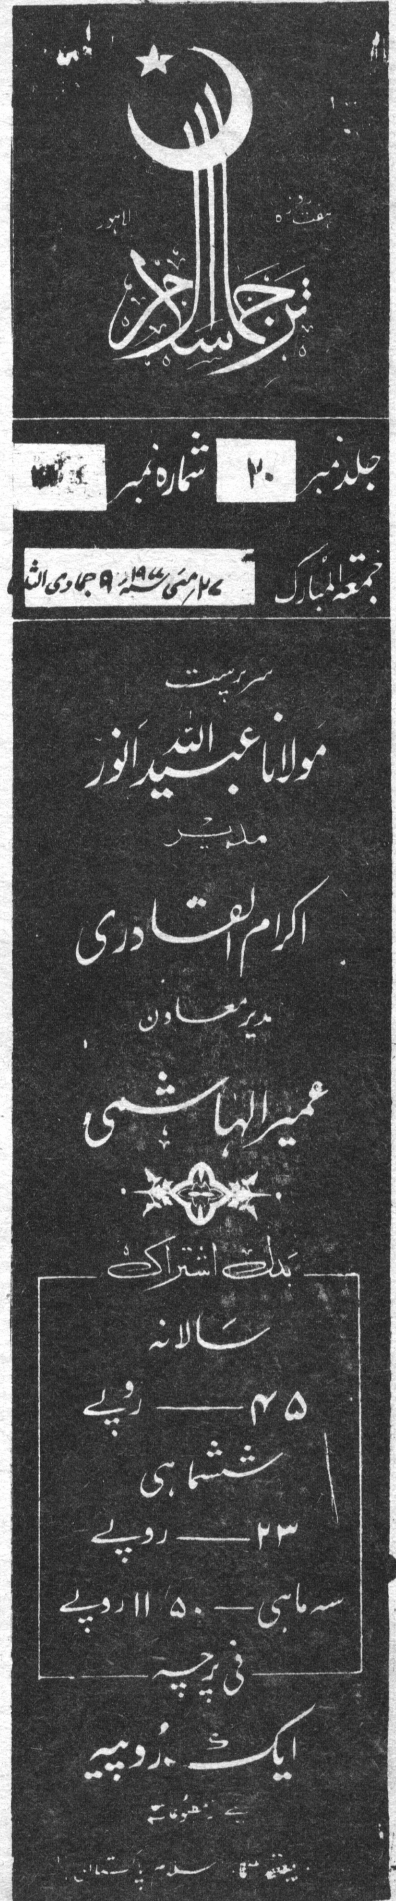 ہفت روزہ لاہور
ترجمان اسلام
جلد نمبر ۲۰ شمارہ نمبر
جمعۃ المبارک ۲۷ مئی ۱۹۷۷ء ۹ جمادی الثانی
سرپرست
مولانا عبید اللہ انور
مدیر
اکرام القادری
مدیر معاون
عمیر الہاشمی
بدل اشتراک
سالانہ
۴۵ — روپے
ششماہی
۲۳ — روپے
سہ ماہی — ۵۰ / ۱۱ روپے
فی پرچہ
ایک روپیہ